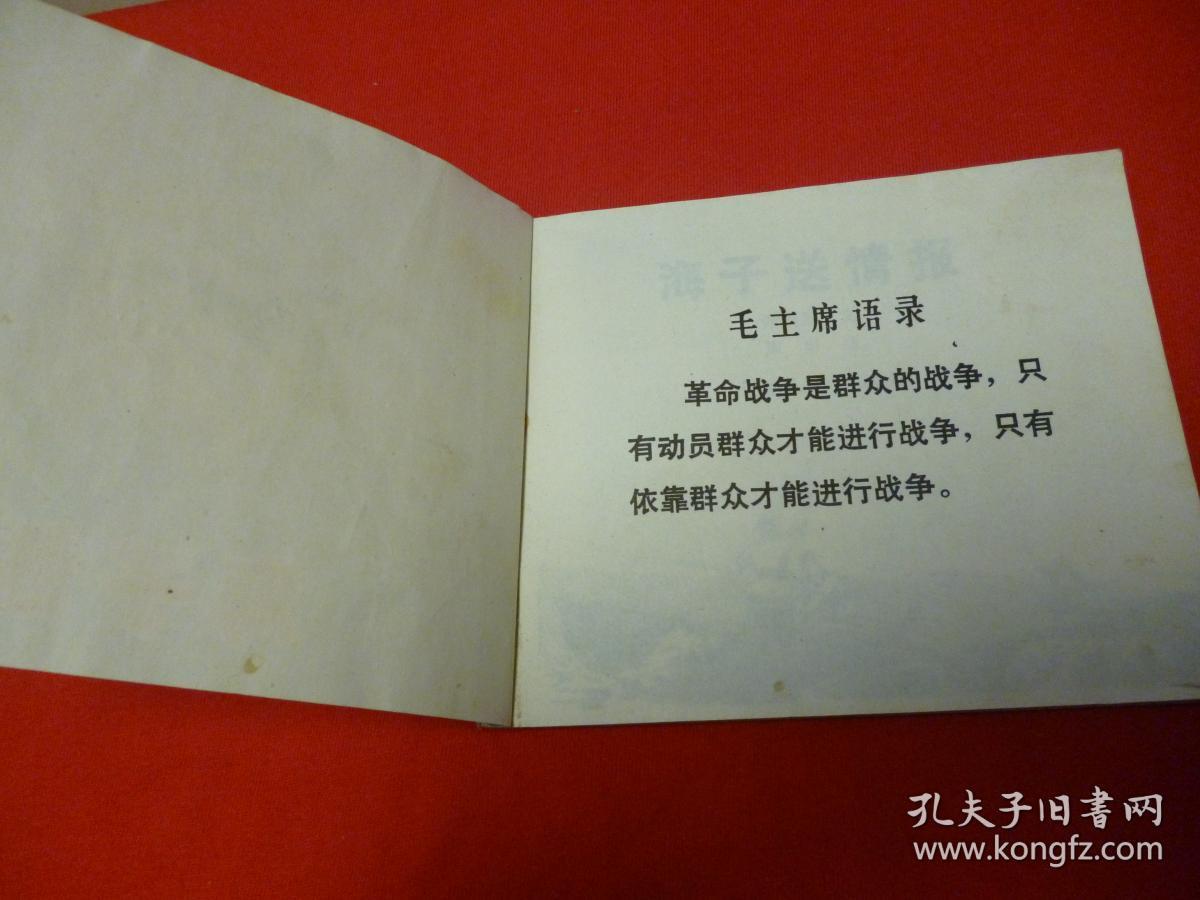 海子送情报
毛主席语录
革命战争是群众的战争，只
有动员群众才能进行战争，只有
依靠群众才能进行战争。
孔夫子旧书网
www.kongfz.com